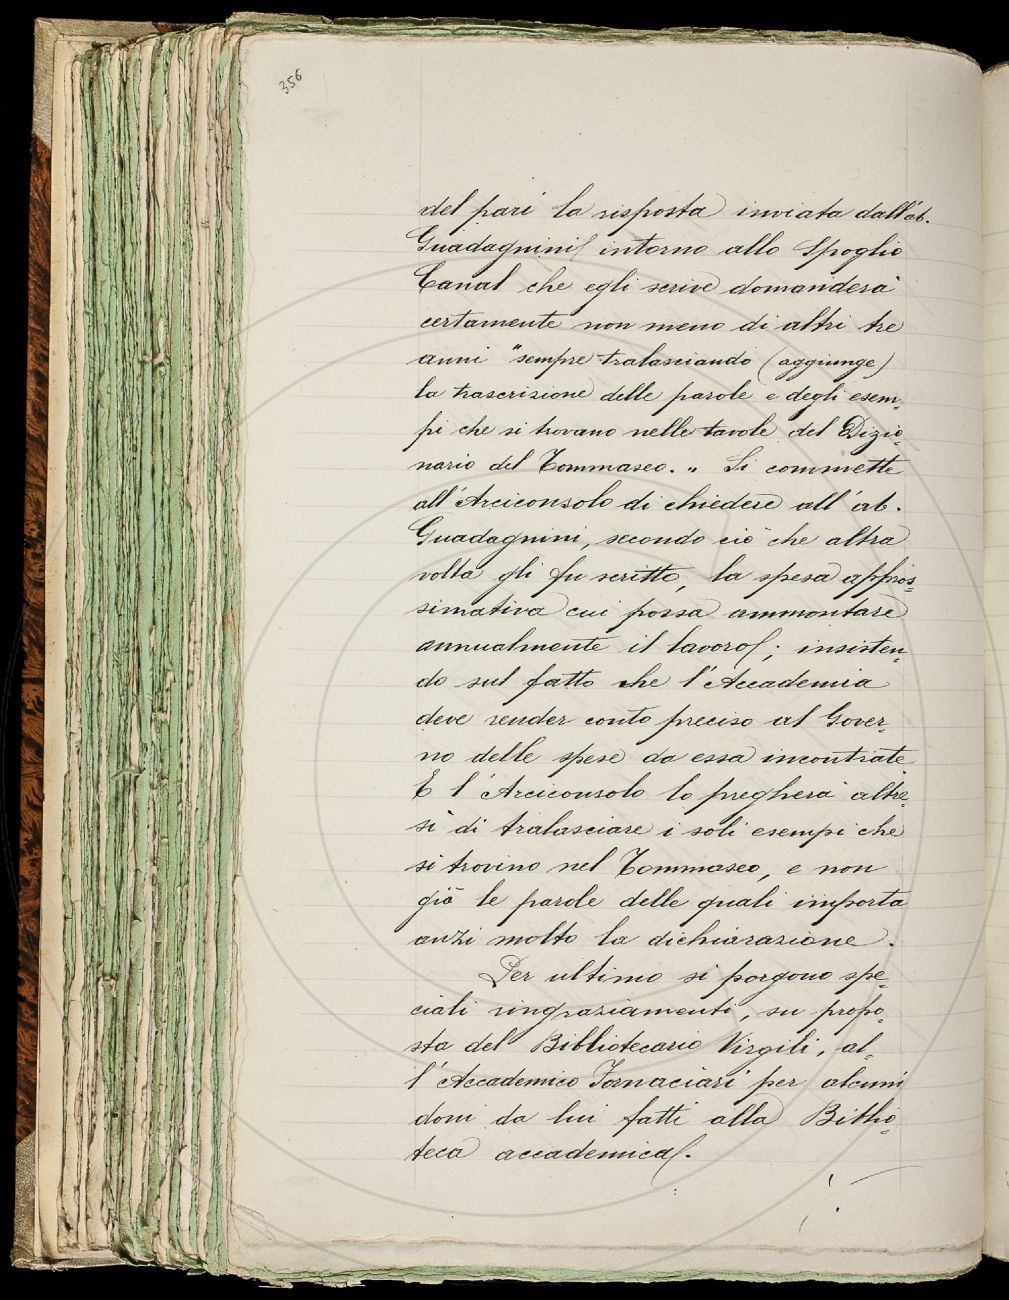 356
del pari la risposta inviata dall'ab.
Guadagnini intorno allo Spoglio
Canal che egli scrive domanderà
certamente non meno di altri tre
anni "sempre tralasciando (aggiunge)
la trascrizione delle parole e degli esem-
pi che si trovano nelle tavole del Dizio-
nario del Tommaseo." Si commette
all'Arciconsolo di chiedere all'ab.
Guadagnini, secondo ciò che altra
volta gli fu scritto, la spesa appros-
simativa cui possa ammontare
annualmente il lavoro; insisten-
do sul fatto che l'Accademia
deve render conto preciso al Gover-
no delle spese da essa incontrate.
E l'Arciconsolo lo pregherà altre-
sì di tralasciare i soli esempi che
si trovino nel Tommaseo, e non
già le parole delle quali importa
anzi molto la dichiarazione.
Per ultimo si porgono spe-
ciali ringraziamenti, su propo-
sta del Bibliotecario Virgili, al-
l'Accademico Fornaciari per alcuni
doni da lui fatti alla Biblio-
teca accademica.